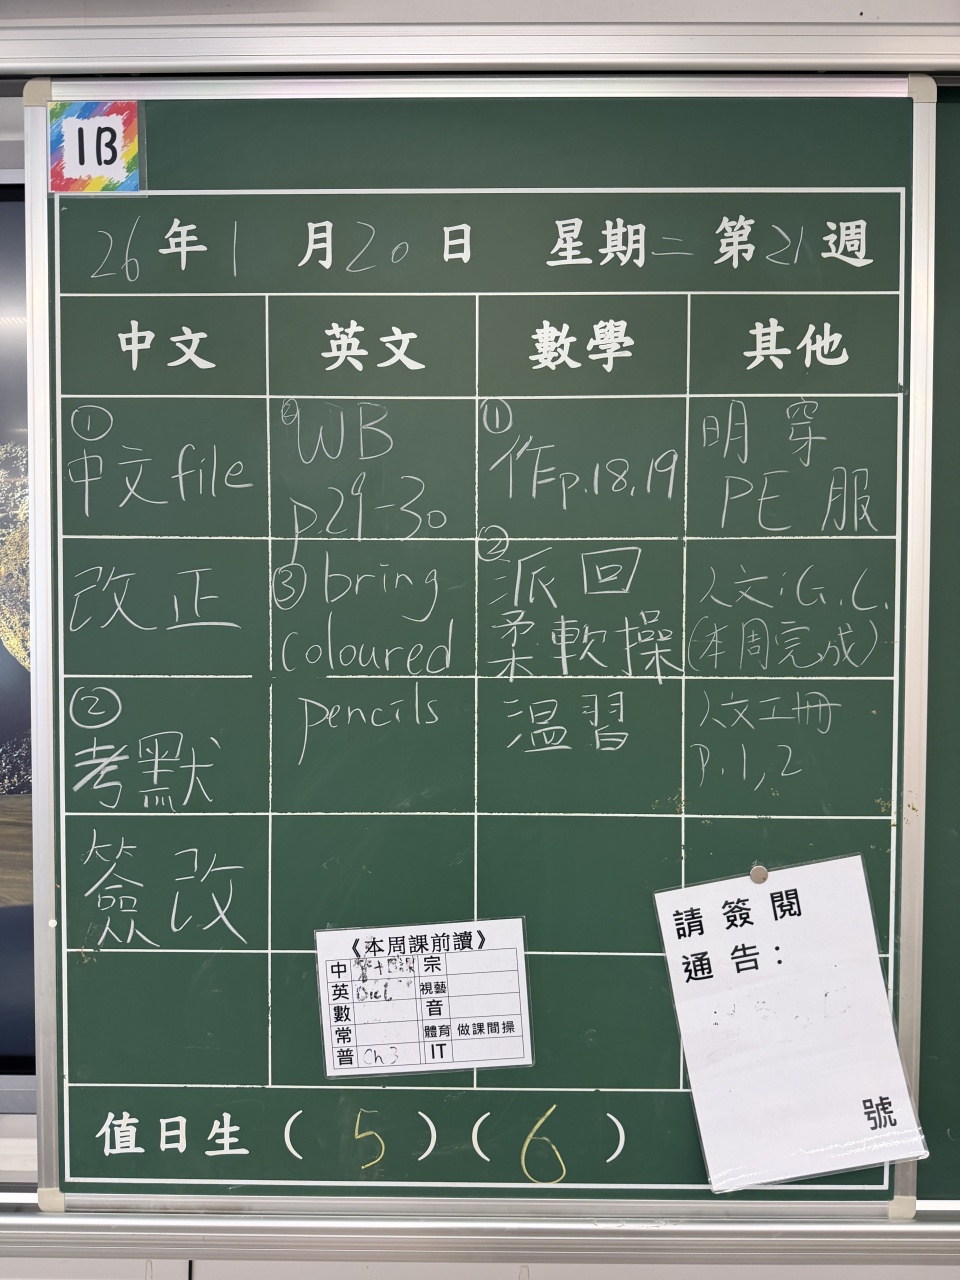 1B
26年1月20日 星期二 第21週
中文 英文 數學 其他
①
中文file
改正
②
考默
簽改
② WB
p.29-30
③ bring
coloured
pencils
①
作p.18,19
②
派回
柔軟操
溫習
明穿
PE服
人文:G.C.
(本周完成)
人文工冊
P.1,2
《本周課前讀》
中 宗
英 Dict 視藝
數 音
常 體育 做課間操
普 Ch3 IT
請簽閱
通告:
號
值日生(5)(6)